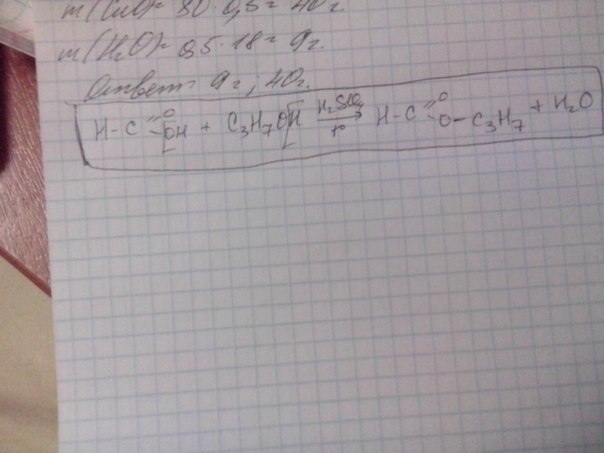 m(CuO)= 80·0,5= 40г.
m(H₂O)= 0,5·18= 9г.
Ответ: 9г; 40г.
H-C=O-OH + C₃H₇OH H₂SO₄ t° → H-C=O-O-C₃H₇ + H₂O